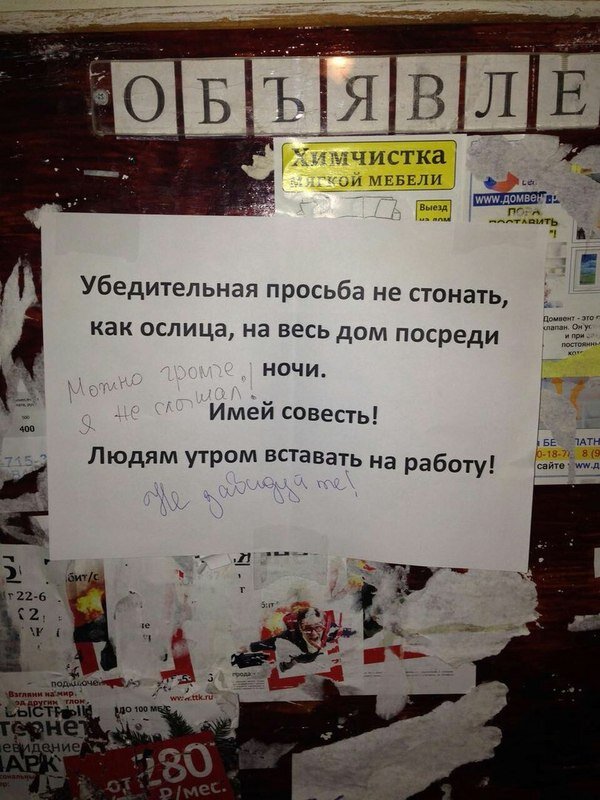 ОБЪЯВЛЕ
Химчистка
МЯГКОЙ МЕБЕЛИ
Выезд
на дом
www.домвент
ПОРА
ПОСТАВИТЬ
Убедительная просьба не стонать,
как ослица, на весь дом посреди
ночи.
Можно громче!
Я не слышал!
Имей совесть!
Людям утром вставать на работу!
Не завидуйте!
Домвент - это п
клапан. Он ус
и при
постоянны
400
715-
0-18-7
8 (9
сайте
www.д
бит/с
22-6
www.ttk.ru
Взгляни на мир,
ДО 100 МБ
БЫСТРЫЙ
тернет
евидение
ПАРК
от 280
Р/мес.